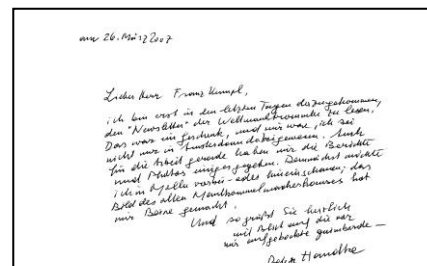 am 26. März 2007
Lieber Herr Franz Kumpl,
ich bin erst in den letzten Tagen dazugekommen,
den "Newsletter" der zu lesen.
Das war ein Geschenk, und mir war, ich sei
nicht nur in Amsterdam dabeigewesen. Auch
für die Arbeit gerade haben mir die Berichte
und Photos einiges gegeben. Demnächst möchte
ich in Molln vorbei- oder hineinschauen; das
Bild des alten Maultrommelmacherhauses hat
mir Beine gemacht.
Und so grüßt Sie herzlich
mit Blick auf die vor
mir aufgebockte guimbarde —
Peter Handke